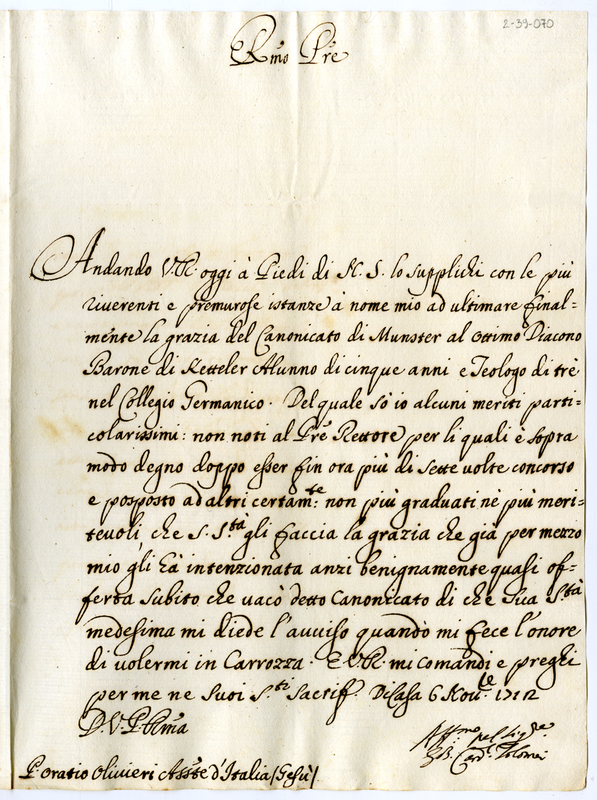 2-39-070
Rmo Pre
Andando V.R. oggi à Piedi di N. S. lo supplichi con le più
riverenti e premurose istanze à nome mio ad ultimare final=
mente la grazia del Canonicato di Munster al ottimo Diacono
Barone di Ketteler Alunno di cinque anni e Teologo di trè
nel Collegio Germanico. Del quale sò io alcuni meriti parti=
colarissimi: non noti al Pre Rettore per li quali è sopra
modo degno doppo esser fin ora più di sette volte concorso
e posposto ad altri certamte: non più graduati nè più meri=
tevoli, che S. Stà gli faccia la grazia che già per mezzo
mio gli hà intenzionata anzi benignamente quasi of=
ferta subito che vacò detto Canonicato di che Sua Stà
medesima mi diede l'avviso quando mi fece l'onore
di volermi in Carrozza. E V.R. mi comandi e preghi
per me ne suoi Sti Sactif. Di Casa 6 Nov.le 1712
D.V.P. Rma
Affmo
G.B. Card. Tolomei
P. Oratio Olivieri Asste d'Italia (Gesù).